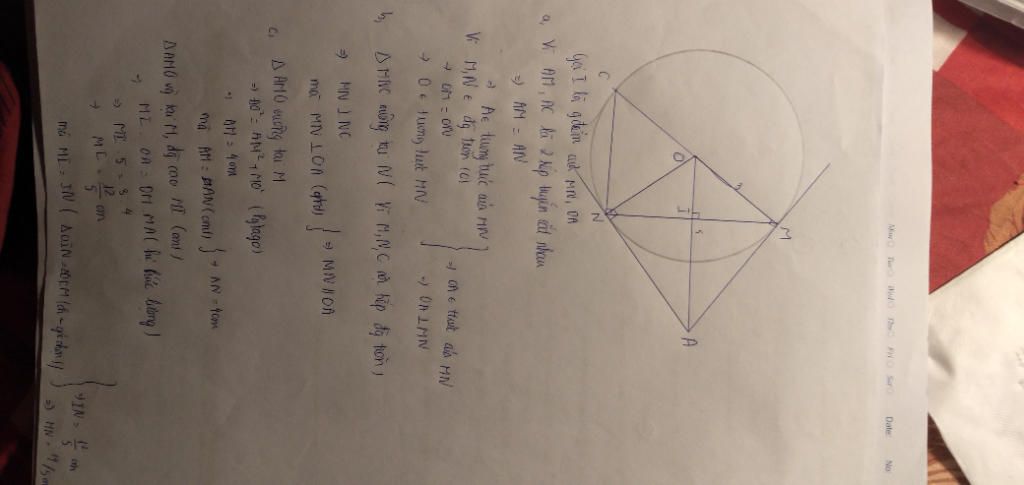 Mon Tue Wed Thu Fri Sat Date: No:
C
O
3
N
I
5
M
A
Gọi I là g điểm của MN, OA
a, Vì AM, AC là 2 tiếp tuyến cắt nhau
⇒ AM = AN
⇒ A ∈ trung trực của MN
Vì M, N ∈ đg tròn (O)
→ OM = ON
→ O ∈ trung trực MN
⇒ OA ∈ trực của MN
→ OA ⊥ MN
b, Δ MNC vuông tại N ( Vì M, N, C nội tiếp đg tròn )
⇒ MN ⊥ NC
mà MN ⊥ OA (cmt)
⇒ NC // OA
c, Δ AMO vuông tại M
⇒ AO² = AM² + MO² ( Pytago )
→ AM = 4cm
mà AM = AN (cmt)
→ AN = 4cm
Δ AMO vg tại M, đg cao MI (cmt)
→ MI . OA = OM . MA ( hệ thức lượng )
⇒ MI . 5 = 3 . 4
→ MI = 12/5 cm
mà MI = IN
→ IN = 12/5 cm